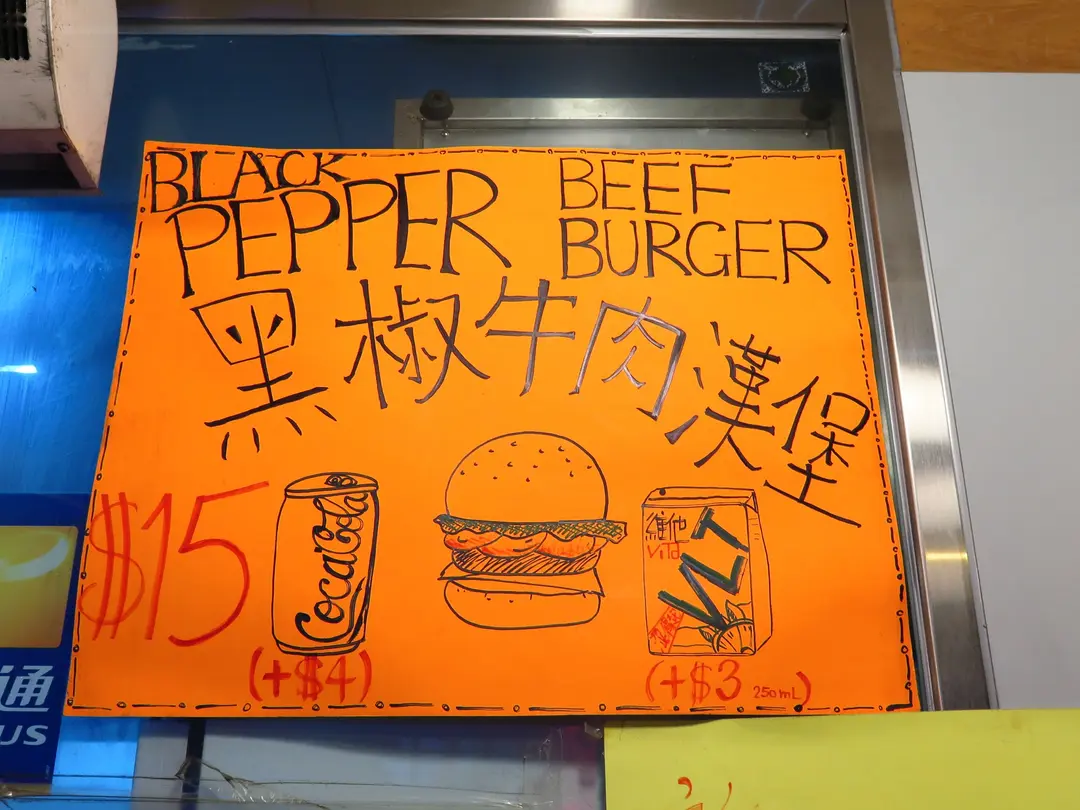 BLACK
PEPPER
BEEF
BURGER
黑椒牛肉漢堡
$15
Coca Cola
(+$4)
維他
Vita
VLT
(+$3 250mL)
通
US